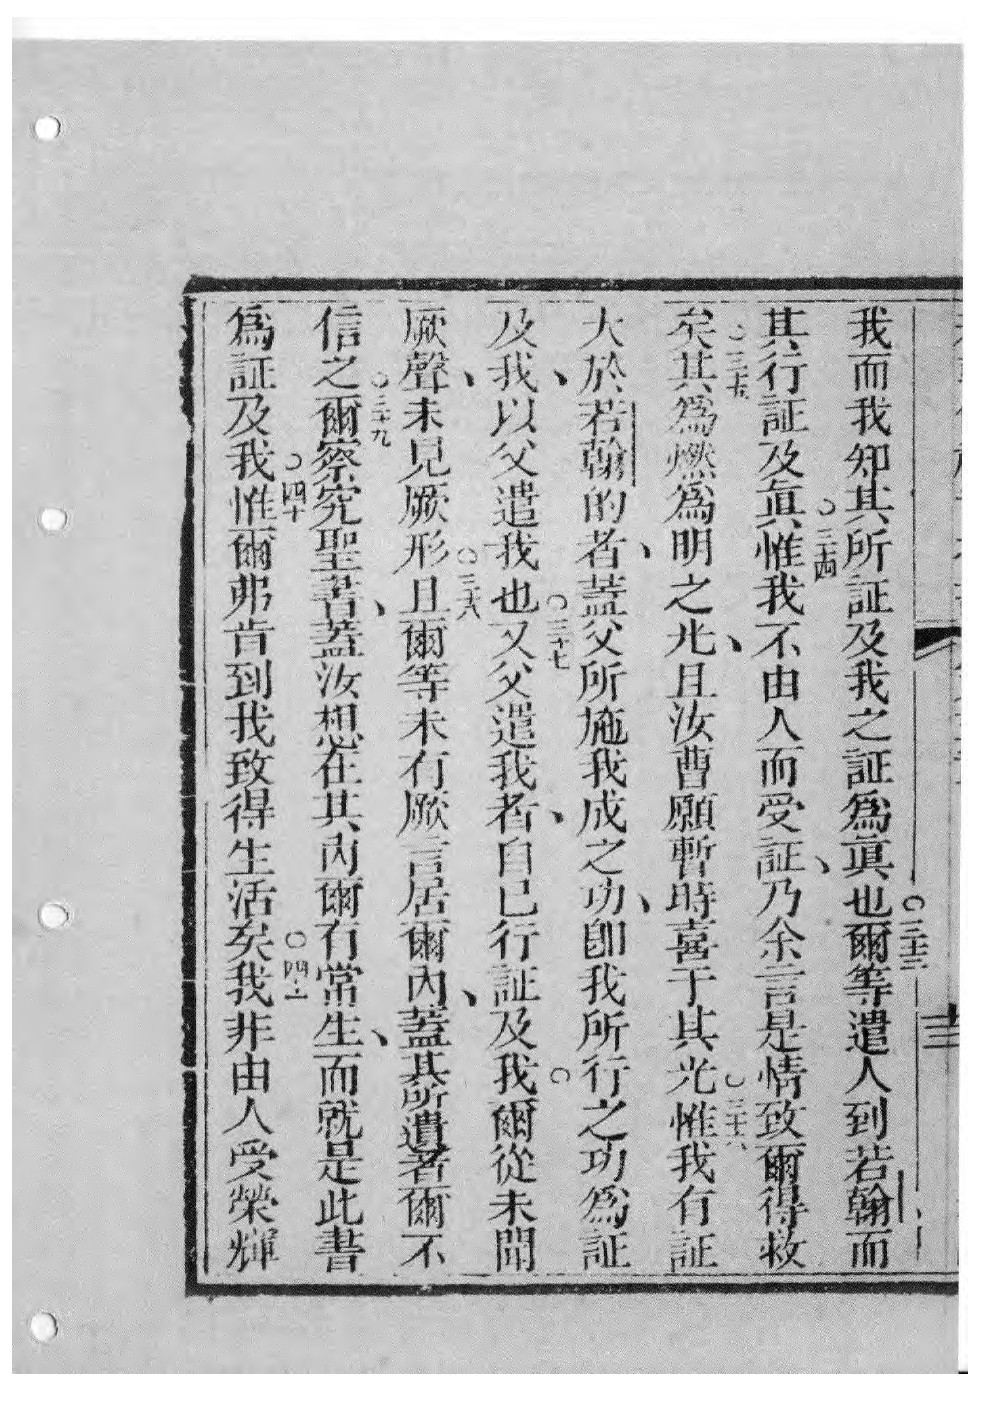 我而我知其所証及我之証爲眞也○三十三爾等遣人到若翰而
其行証及眞○三十四惟我不由人而受証、乃余言是情致爾得救
矣○三十五其爲燃爲明之光、且汝曹願暫時喜于其光○三十六惟我有証
大於若翰的者、蓋父所施我成之功、卽我所行之功爲証
及我、以父遣我也○三十七又父遣我者、自已行証及我○爾從未聞
厥聲、未見厥形○三十八且爾等未有厥言居爾內、蓋其所遺者爾不
信之○三十九爾察究聖書、蓋汝想在其內爾有常生、而就是此書
爲証及我○四十惟爾弗肯到我致得生活矣○四十一我非由人受榮輝